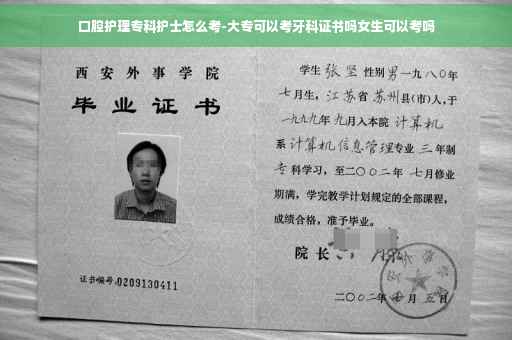 口腔护理专科护士怎么考-大专可以考牙科证书吗女生可以考吗
西安外事学院
毕业证书
证书编号:0209130411
学生 张坚 性别 男 一九八〇年
七月生，江苏省 苏州县(市)人,于
一九九九年 九月入本院 计算机
系 计算机信息管理专业 三 年制
专科学习，至二〇〇二年 七月修业
期满，学完教学计划规定的全部课程，
成绩合格，准予毕业。
院长
二〇〇二年 月 五日